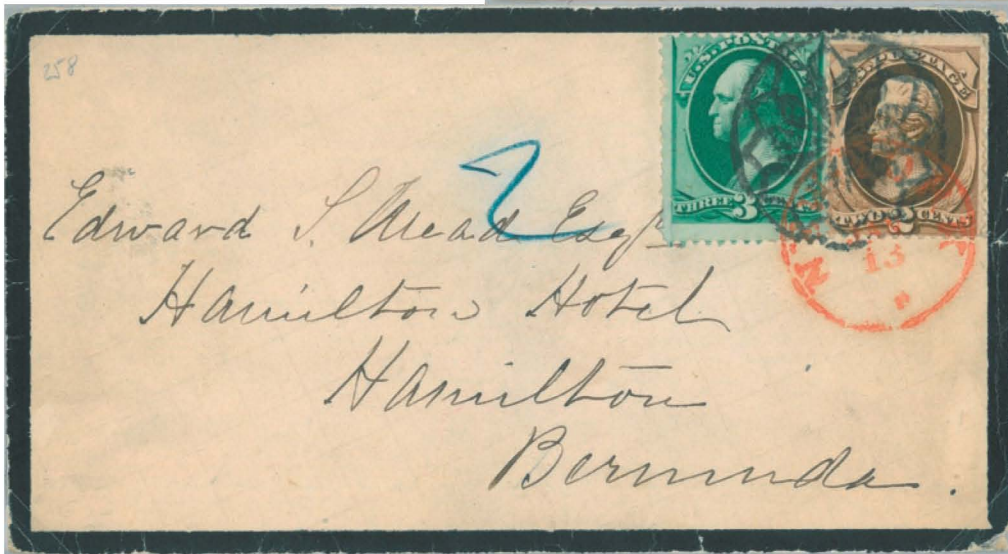 258
U.S. POSTAGE
THREE 3 CENTS
U.S. POSTAGE
TWO 2 CENTS
2
Edward S. Mead Esqr
13
Hamilton Hotel
Hamilton
Bermuda.